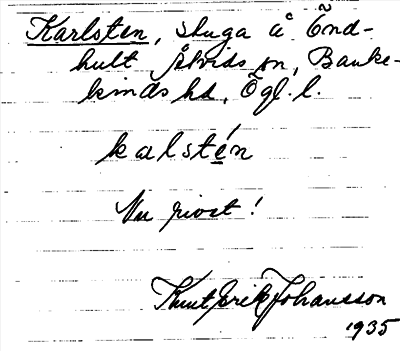 Karlsten, stuga å Önd-
hult Åtvids sn, Banke-
kinds hd, Ögl. l.
kalstén
Nu rivet!
Knut Erik Johansson
1935